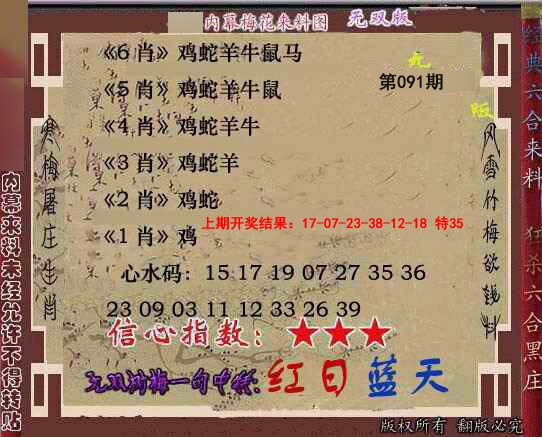 内幕梅花来料图 无双版
《6 肖》鸡蛇羊牛鼠马
无
《5 肖》鸡蛇羊牛鼠
第091期
版
《4 肖》鸡蛇羊牛
《3 肖》鸡蛇羊
《2 肖》鸡蛇
上期开奖结果：17-07-23-38-12-18 特35
《1 肖》鸡
心水码： 15 17 19 07 27 35 36
23 09 03 11 12 33 26 39
信心指数：★★★
无双刘梅一句中特:红日蓝天
版权所有 翻版必究
寒梅屠庄生肖
风雪竹梅欲钱料
内幕来料未经允许不得转贴
经典六合来料
狂杀六合黑庄